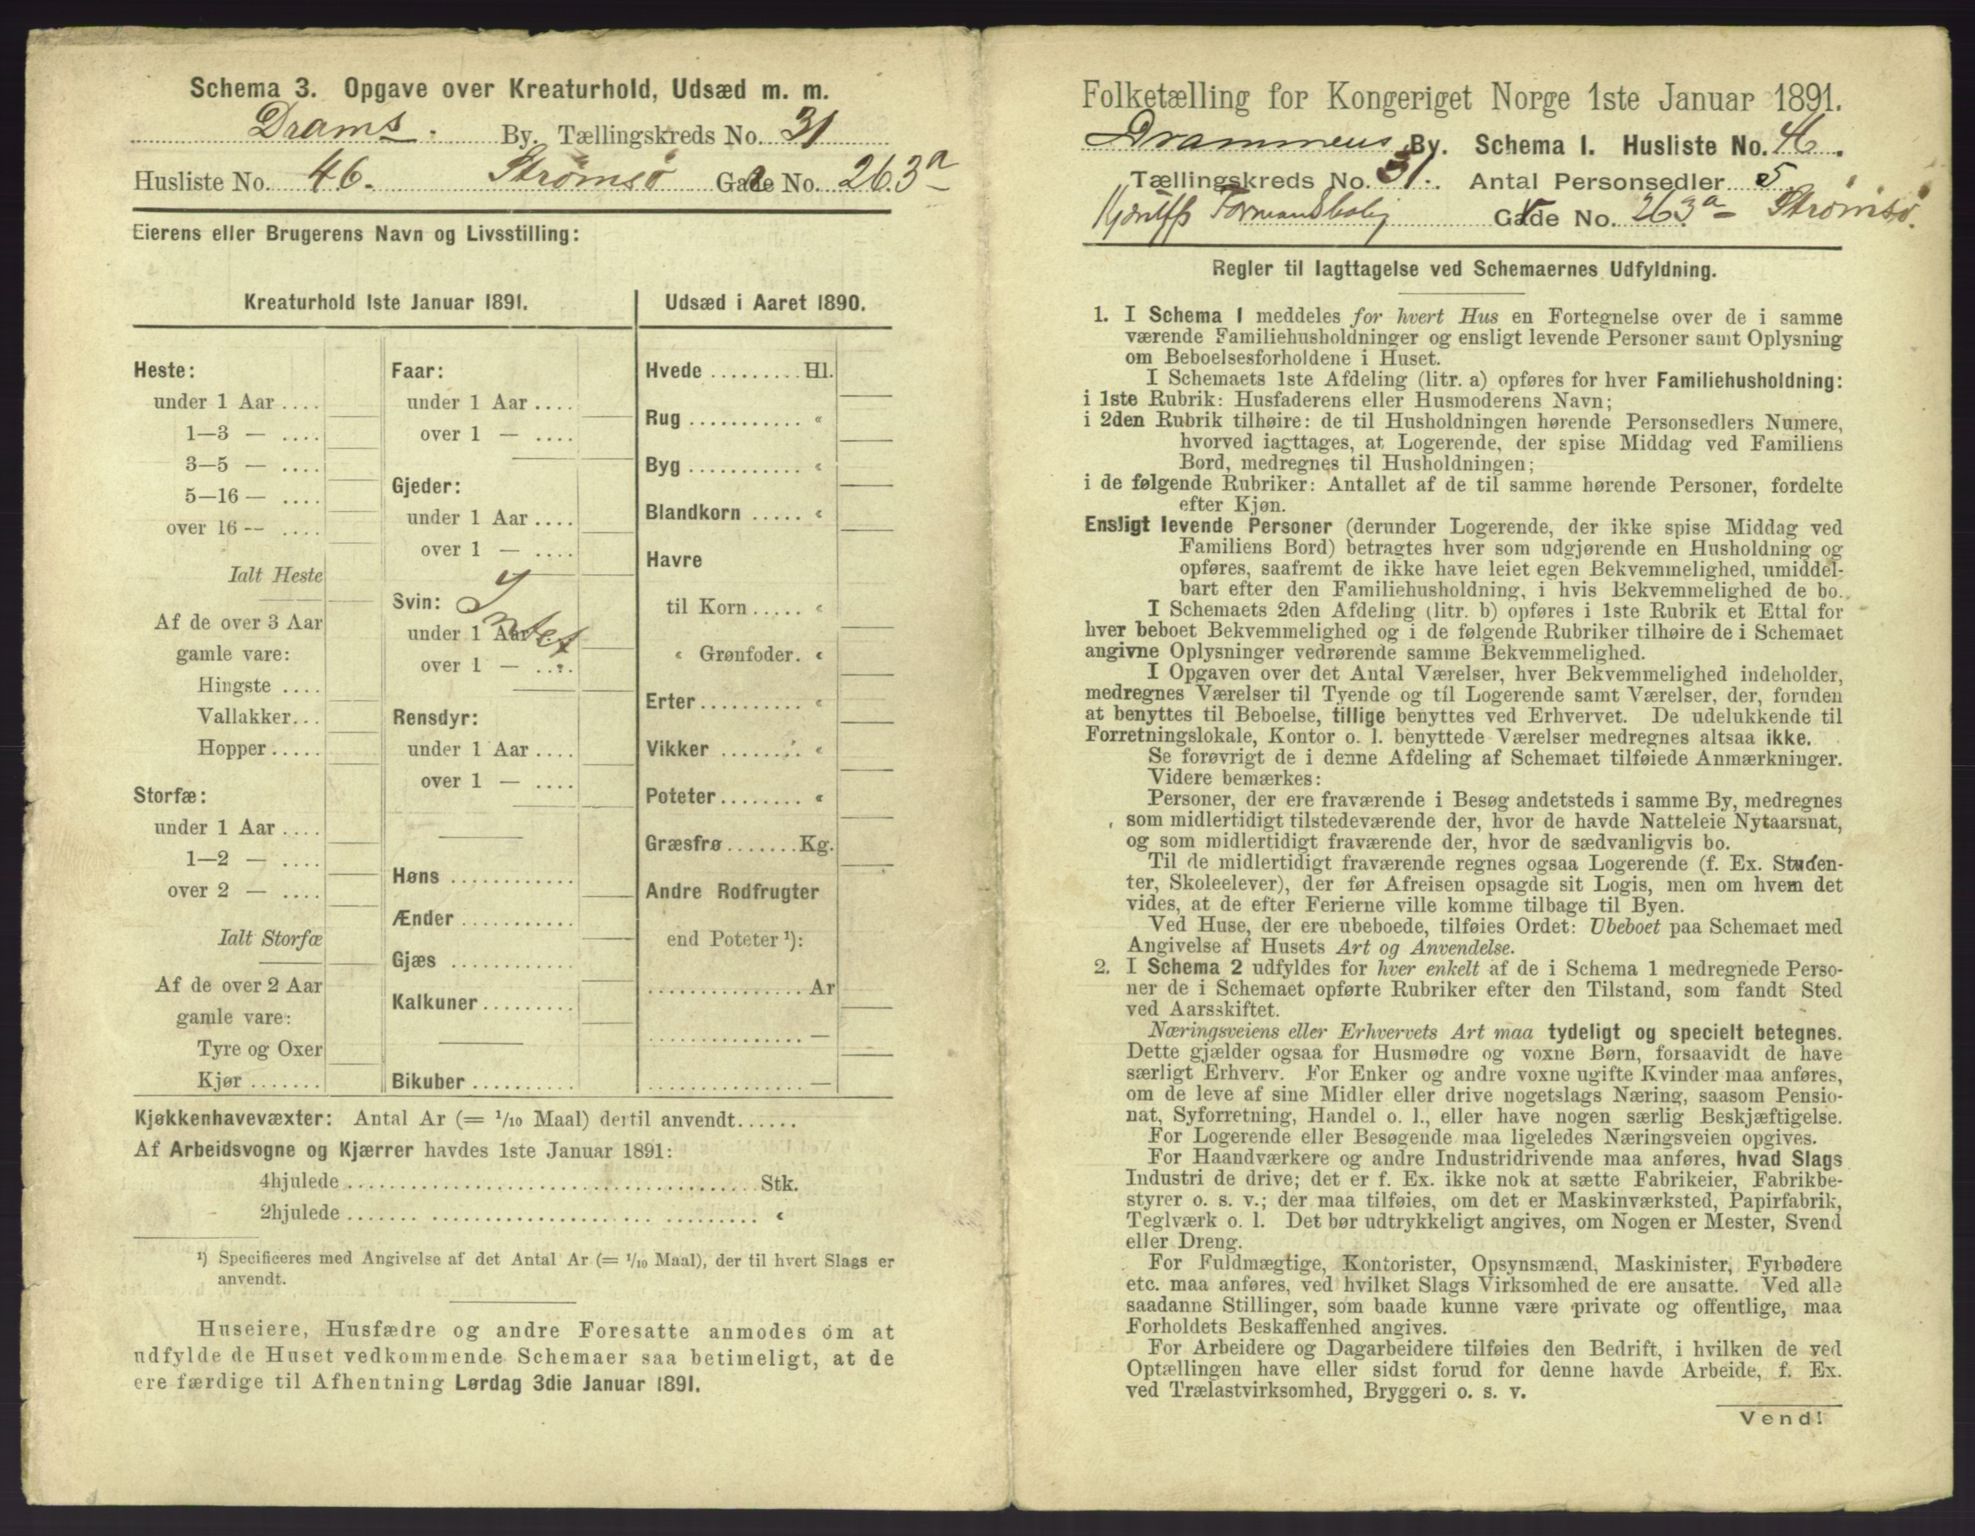 Schema 3. Opgave over Kreaturhold, Udsæd m. m.
Drams. By. Tællingskreds No. 31
Husliste No. 46. Strømsø Gade No. 263a
Eierens eller Brugerens Navn og Livsstilling:
Kreaturhold 1ste Januar 1891.
Heste:
under 1 Aar ....
1—3 — ....
3—5 — ....
5—16 — ....
over 16 — ....
Ialt Heste
Af de over 3 Aar
gamle vare:
Hingste ....
Vallakker...
Hopper.....
Storfæ:
under 1 Aar ....
1—2 — ....
over 2 — ....
Ialt Storfæ
Af de over 2 Aar
gamle vare:
Tyre og Oxer
Kjør.......
Faar:
under 1 Aar ....
over 1 — ....
Gjeder:
under 1 Aar....
over 1 — ....
Svin: Intet
under 1 Aar
over 1 — ...
Rensdyr:
under 1 Aar....
over 1 — ....
Høns ............
Ænder ...........
Gjæs ............
Kalkuner.........
Bikuber..........
Udsæd i Aaret 1890.
Hvede .........Hl.
Rug ........... «
Byg ........... «
Blandkorn ..... «
Havre
til Korn ..... «
« Grønfoder. «
Erter.......... «
Vikker ........ «
Poteter........ «
Græsfrø.......Kg.
Andre Rodfrugter
end Poteter ¹):
................Ar
................—
................—
Kjøkkenhavevæxter: Antal Ar (= 1/10 Maal) dertil anvendt......
Af Arbeidsvogne og Kjærrer havdes 1ste Januar 1891:
4hjulede ........................................ Stk.
2hjulede ........................................ «
¹) Specificeres med Angivelse af det Antal Ar (= 1/10 Maal), der til hvert Slags er
anvendt.
Huseiere, Husfædre og andre Foresatte anmodes om at
udfylde de Huset vedkommende Schemaer saa betimeligt, at de
ere færdige til Afhentning Lørdag 3die Januar 1891.
Folketælling for Kongeriget Norge 1ste Januar 1891.
Drammens By. Schema I. Husliste No. 46.
Tællingskreds No. 31. Antal Personsedler 5.
Formandsbolig Gade No. 263a Strømsø.
Regler til Iagttagelse ved Schemaernes Udfyldning.
1. I Schema 1 meddeles for hvert Hus en Fortegnelse over de i samme
værende Familiehusholdninger og ensligt levende Personer samt Oplysning
om Beboelsesforholdene i Huset.
I Schemaets 1ste Afdeling (litr. a) opføres for hver Familiehusholdning:
i 1ste Rubrik: Husfaderens eller Husmoderens Navn;
i 2den Rubrik tilhøire: de til Husholdningen hørende Personsedlers Numere,
hvorved iagttages, at Logerende, der spise Middag ved Familiens
Bord, medregnes til Husholdningen;
i de følgende Rubriker: Antallet af de til samme hørende Personer, fordelte
efter Kjøn.
Ensligt levende Personer (derunder Logerende, der ikke spise Middag ved
Familiens Bord) betragtes hver som udgjørende en Husholdning og
opføres, saafremt de ikke have leiet egen Bekvemmelighed, umiddel-
bart efter den Familiehusholdning, i hvis Bekvemmelighed de bo.
I Schemaets 2den Afdeling (litr. b) opføres i 1ste Rubrik et Ettal for
hver beboet Bekvemmelighed og i de følgende Rubriker tilhøire de i Schemaet
angivne Oplysninger vedrørende samme Bekvemmelighed.
I Opgaven over det Antal Værelser, hver Bekvemmelighed indeholder,
medregnes Værelser til Tyende og til Logerende samt Værelser, der, foruden
at benyttes til Beboelse, tillige benyttes ved Erhvervet. De udelukkende til
Forretningslokale, Kontor o. l. benyttede Værelser medregnes altsaa ikke.
Se forøvrigt de i denne Afdeling af Schemaet tilføiede Anmærkninger.
Videre bemærkes:
Personer, der ere fraværende i Besøg andetsteds i samme By, medregnes
som midlertidigt tilstedeværende der, hvor de havde Natteleie Nytaarsnat,
og som midlertidigt fraværende der, hvor de sædvanligvis bo.
Til de midlertidigt fraværende regnes ogsaa Logerende (f. Ex. Studen-
ter, Skoleelever), der før Afreisen opsagde sit Logis, men om hvem det
vides, at de efter Ferierne ville komme tilbage til Byen.
Ved Huse, der ere ubeboede, tilføies Ordet: Ubeboet paa Schemaet med
Angivelse af Husets Art og Anvendelse.
2. I Schema 2 udfyldes for hver enkelt af de i Schema 1 medregnede Perso-
ner de i Schemaet opførte Rubriker efter den Tilstand, som fandt Sted
ved Aarsskiftet.
Næringsveiens eller Erhvervets Art maa tydeligt og specielt betegnes.
Dette gjælder ogsaa for Husmødre og voxne Børn, forsaavidt de have
særligt Erhverv. For Enker og andre voxne ugifte Kvinder maa anføres,
om de leve af sine Midler eller drive nogetslags Næring, saasom Pensio-
nat, Syforretning, Handel o. l., eller have nogen særlig Beskjæftigelse.
For Logerende eller Besøgende maa ligeledes Næringsveien opgives.
For Haandværkere og andre Industridrivende maa anføres, hvad Slags
Industri de drive; det er f. Ex. ikke nok at sætte Fabrikeier, Fabrikbe-
styrer o. s. v.; der maa tilføies, om det er Maskinværksted, Papirfabrik,
Teglværk o. l. Det bør udtrykkeligt angives, om Nogen er Mester, Svend
eller Dreng.
For Fuldmægtige, Kontorister, Opsynsmænd, Maskinister, Fyrbødere
etc. maa anføres, ved hvilket Slags Virksomhed de ere ansatte. Ved alle
saadanne Stillinger, som baade kunne være private og offentlige, maa
Forholdets Beskaffenhed angives.
For Arbeidere og Dagarbeidere tilføies den Bedrift, i hvilken de ved
Optællingen have eller sidst forud for denne havde Arbeide, f. Ex.
ved Trælastvirksomhed, Bryggeri o. s. v.
Vend!